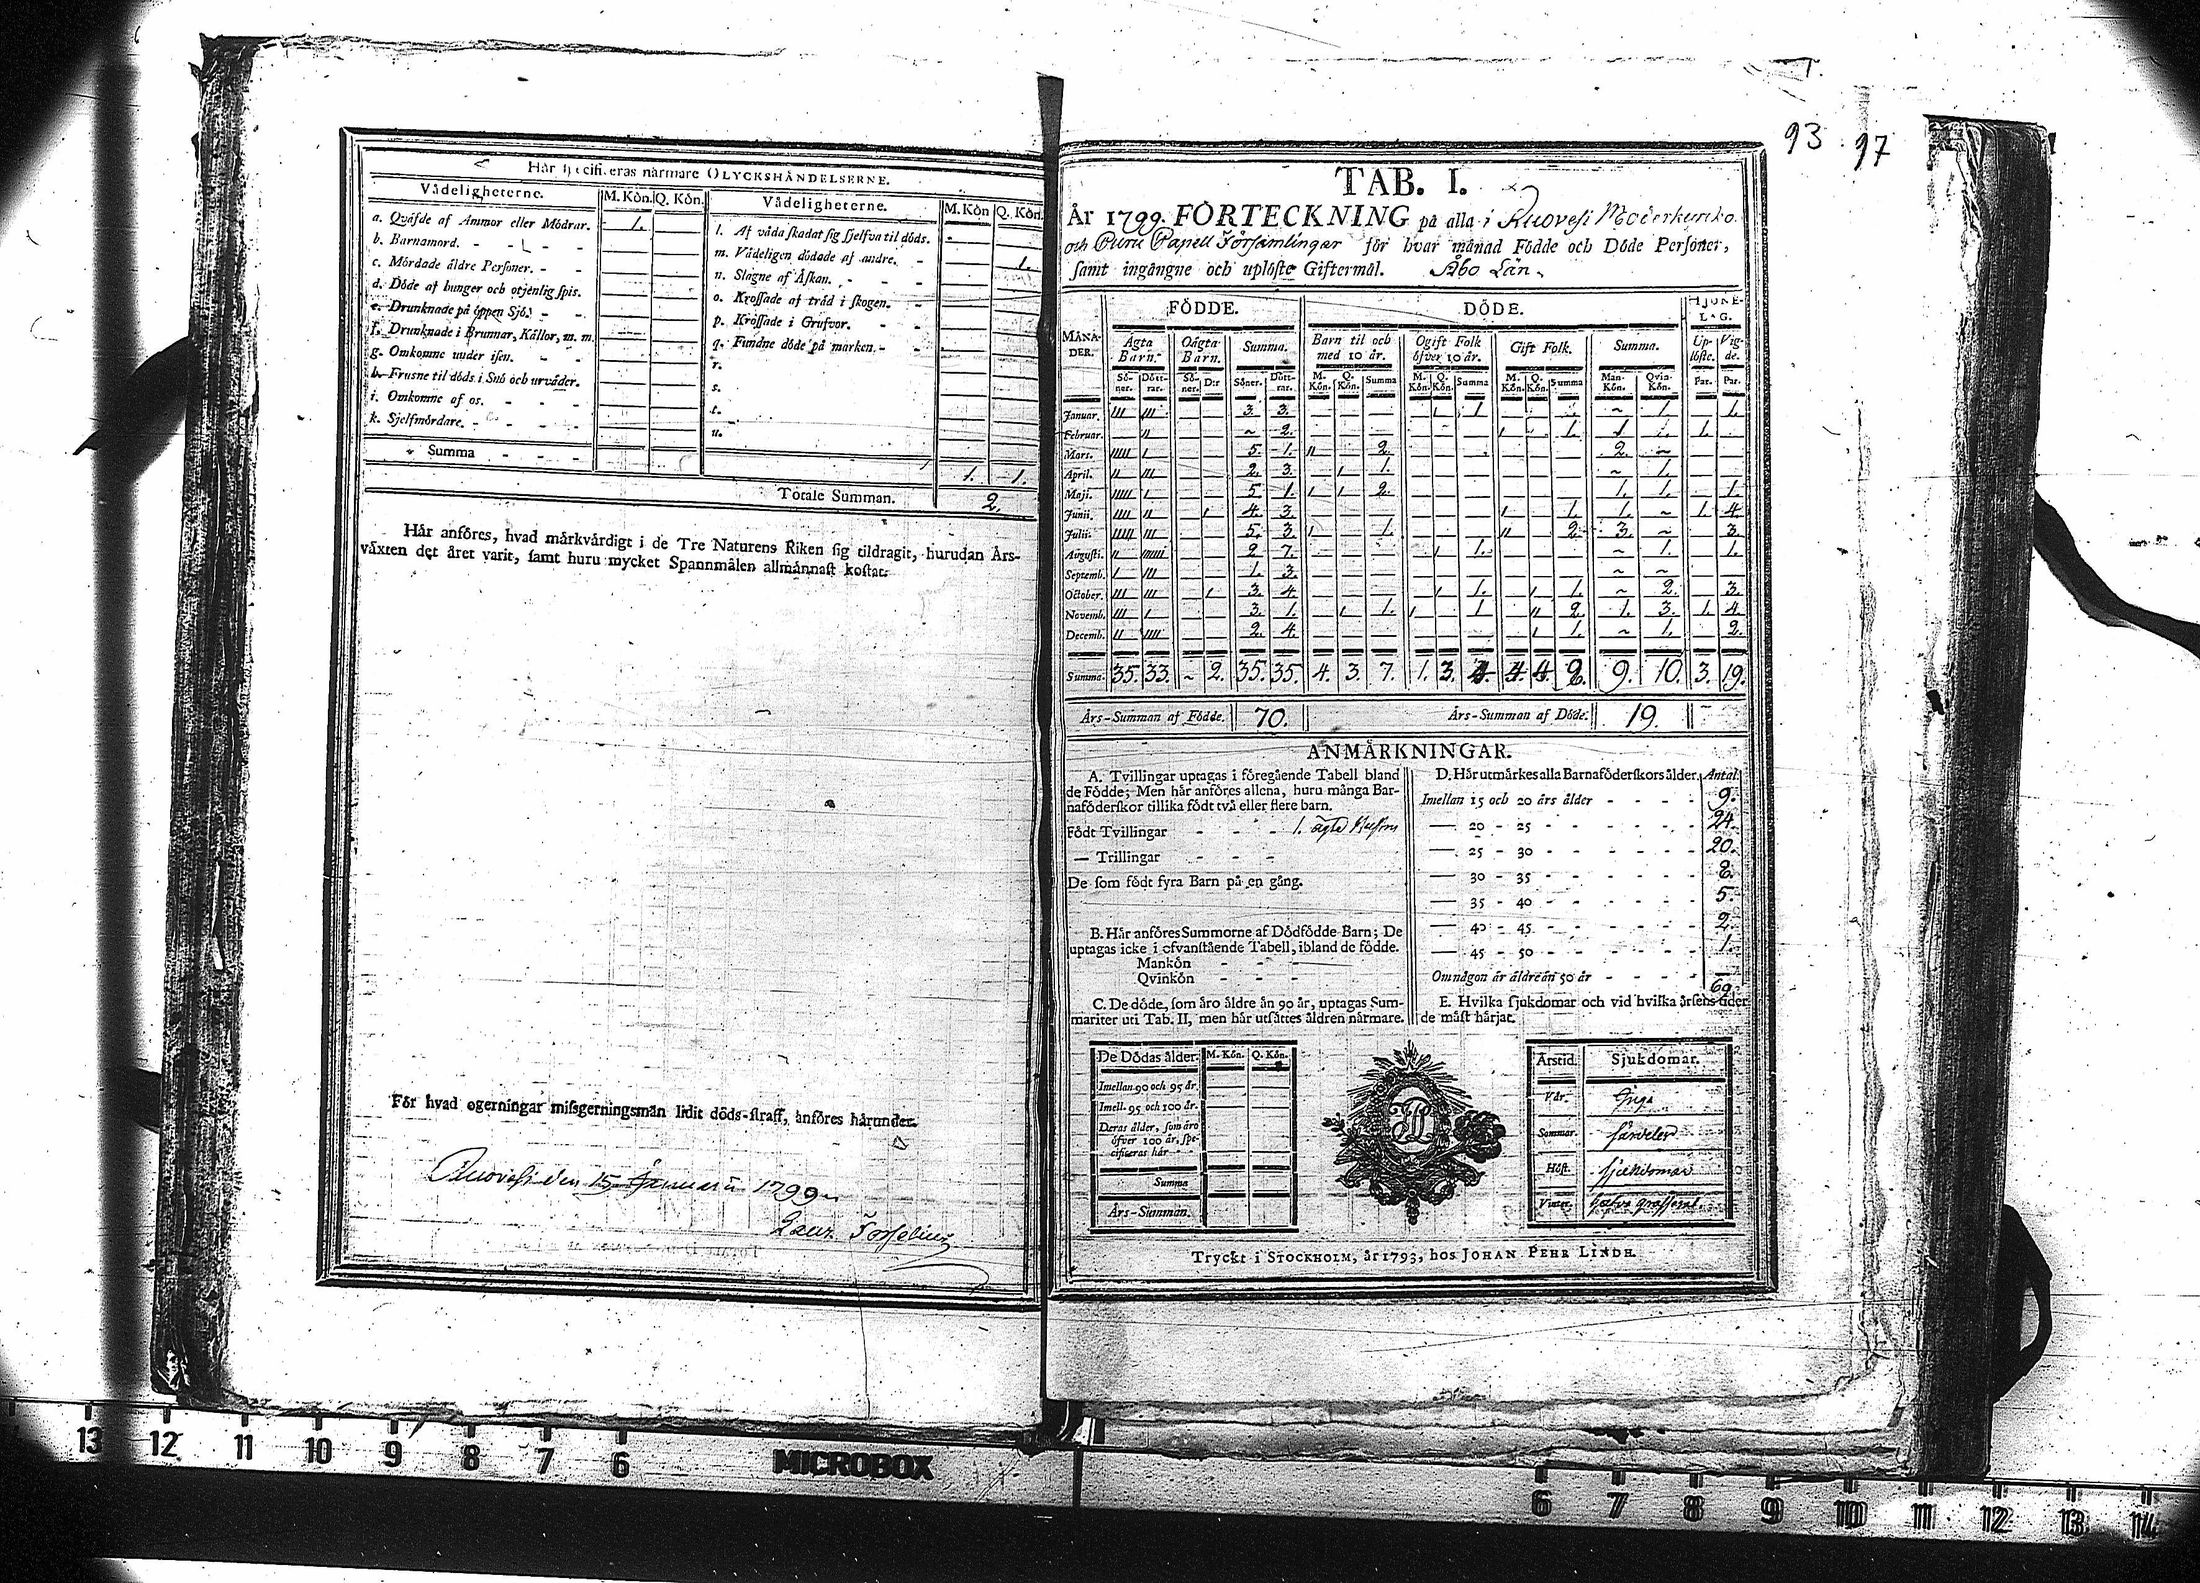 Här specificeras närmare OLYCKSHÄNDELSERNE.
Vådeligheterne. M. Kön. Q. Kön. Vådeligheterne. M. Kön Q. Kön.
a. Qväfde af Ammor eller Mödrar. 1.
b. Barnamord.
c. Mördade äldre Personer.
d. Döde af hunger och otjenlig spis.
e. Drunknade på öppen Sjö.
f. Drunknade i Brunnar, Källor, m. m.
g. Omkomne under isen.
h. Frusne til döds i Snö och urväder.
i. Omkomne af os.
k. Sjelfmördare.
l. Af våda skadat sig sjelfva til döds.
m. Vådeligen dödade af andre. 1.
n. Slagne af Åskan.
o. Krossade af träd i skogen.
p. Krossade i Grufvor.
q. Fundne döde på marken.
r.
s.
t.
u.
Summa 1. 1.
Totale Summan. 2.
Här anföres, hvad märkvärdigt i de Tre Naturens Riken sig tildragit, hurudan Års-
växten det året varit, samt huru mycket Spannmålen allmännast kostat.
För hvad ogerningar missgerningsmän lidit döds-straff, anföres härunder.
Ruovesi den 15 Januarii 1799
Laur. Forselius
93 97
TAB. I.
År 1799. FÖRTECKNING på alla i Ruovesi Moderkyrko
och Capell Församlingar för hvar månad Födde och Döde Personer,
samt ingångne och uplöste Giftermål. Åbo Län.
FÖDDE. DÖDE. HJONE-LAG.
MÅNA-DER. Ägta Barn. Oägta Barn. Summa. Barn til och med 10 år. Ogift Folk öfver 10 år. Gift Folk. Summa. Up-löste. Vig-de.
Sö-ner. Dött-rar. Sö-ner. D:r Söner. Dött-rar. M. Kön. Q. Kön. Summa M. Kön. Q. Kön. Summa M. Kön. Q. Kön. Summa Man-Kön. Qvin-Kön. Par. Par.
Januar. III III 3. 3. 1 1 1. 1. 1.
Februar. II 2. 1 1. 1. 1.
Mars. IIIII I 5. 1. II 2. 2.
April. II III 2. 3. 1 1. 1.
Maji. IIIII I 5. 1. 1 1 2. 1. 1. 1.
Junii. IIII II 1 4. 3. 1 1. 1. 1. 4.
Julii. IIIII III 5. 3. 1 1. II 2. 3. 3.
Augusti. II IIIIIII 2. 7. 1 1. 1. 1.
Septemb. I III 1. 3.
October. III III 1 3. 4. 1 1. 1 1. 2. 3.
Novemb. III I 3. 1. 1 1. 1 1 II 2. 1. 3. 1. 4.
Decemb. II IIII 2. 4. 1 1. 1. 2.
Summa. 35. 33. 2. 35. 35. 4. 3. 7. 1. 3. 4. 4. 4. 9. 10. 3. 19.
Års-Summan af Födde. 70. Års-Summan af Döde. 19.
ANMÄRKNINGAR.
A. Tvillingar uptagas i föregående Tabell bland
de Födde; Men här anföres allena, huru många Bar-
naföderskor tillika födt två eller flere barn.
Födt Tvillingar 1. ägta
— Trillingar
De som födt fyra Barn på en gång.
B. Här anföres Summorne af Dödfödde Barn; De
uptagas icke i ofvanstående Tabell, ibland de födde.
Mankön
Qvinkön
C. De döde, som äro äldre än 90 år, uptagas Sum-
mariter uti Tab. II, men här utsättes åldren närmare.
D. Här utmärkes alla Barnaföderskors ålder. Antal.
Imellan 15 och 20 års ålder 9.
— 20 - 25 24.
— 25 - 30 20.
— 30 - 35 8.
— 35 - 40 5.
— 40 - 45 2.
— 45 - 50 1.
Om någon är äldre än 50 år
69.
E. Hvilka sjukdomar och vid hvilka årsens tider
de mäst härjat.
De Dödas ålder. M. Kön. Q. Kön.
Imellan 90 och 95 år.
Imell. 95 och 100 år.
Deras ålder, som äro
öfver 100 år, spe-
cificeras här
Summa
Års-Summan.
Årstid. Sjukdomar.
Vår. Inga
Sommar. särdeles
Höst. sjukdomar
Vinter. hafva grasserat.
Tryckt i STOCKHOLM, år 1793, hos JOHAN PEHR LINDH.
13 12 11 10 9 8 7 6 MICROBOX 6 7 8 9 10 11 12 13 14